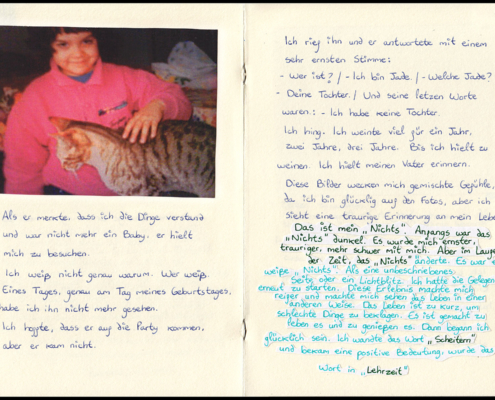 Als er merkte, dass ich die Dinge verstand
und war nicht mehr ein Baby, er hielt
mich zu besuchen.
Ich weiß nicht genau warum. Wer weiß.
Eines Tages, genau am Tag meines Geburtstages,
habe ich ihn nicht mehr gesehen.
Ich hoffte, dass er auf die Party kommen,
aber er kam nicht.
Ich rief ihn und er antwortete mit einem
sehr ernsten Stimme:
- Wer ist? / - Ich bin Jade. / - Welche Jade?
- Deine Tochter. / Und seine letzen Worte
waren: - Ich habe meine Tochter.
Ich hing. Ich weinte viel für ein Jahr,
zwei Jahre, drei Jahre. Bis ich hielt zu
weinen. Ich hielt meinen Vater erinnern.
Diese Bilder wecken mich gemischte Gefühle,
da ich bin glücklich auf den Fotos, aber ich
sieht eine traurige Erinnerung an mein Leben
Das ist mein „Nichts". Anfangs war das
„Nichts" dunkel. Es wurde mich ernster,
trauriger, mehr schwer mit mich. Aber im Laufe
der Zeit, das „Nichts" änderte. Es war
weiße „Nichts". Als eine unbeschriebenes
Seite oder ein Lichtblitz. Ich hatte die Gelegen
erneut zu starten. Diese Erlebnis machte mich
reifer und machte mich sehen das Leben in einer
anderen Weise. Das Leben ist zu kurz, um
schlechte Dinge zu beklagen. Es ist gemacht zu
leben es und zu genießen es. Dann begann ich
glücklich sein. Ich wandte das Wort „Scheitern"
und bekam eine positive Bedeutung, wurde das
Wort in „Lehrzeit")